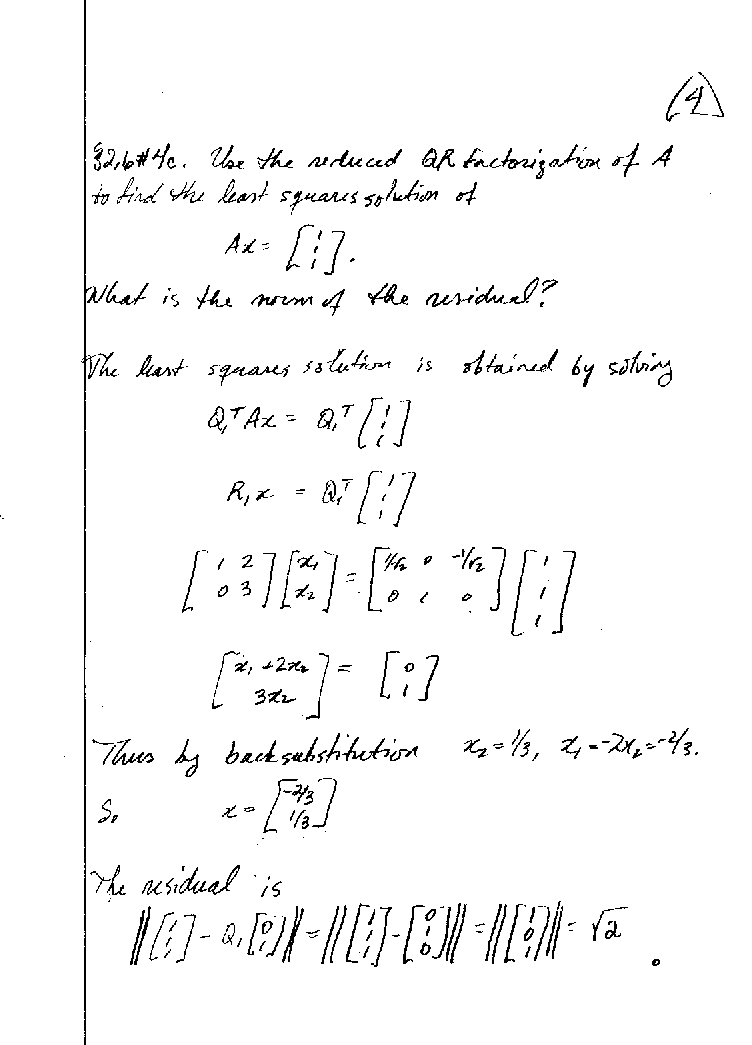 (4)
§2.6#4c. Use the reduced QR factorization of A
to find the least squares solution of
Ax = [1 1 1].
What is the norm of the residual?
The least squares solution is obtained by solving
Q₁ᵀAx = Q₁ᵀ [1 1 1]
R₁x = Q₁ᵀ [1 1 1]
[1 2; 0 3] [x₁; x₂] = [1/√2 0 -1/√2; 0 1 0] [1; 1; 1]
[x₁ + 2x₂; 3x₂] = [0; 1]
Thus by backsubstitution x₂ = 1/3, x₁ = -2x₂ = -2/3.
So x = [-2/3; 1/3]
The residual is
‖[1; 1; 1] - Q₁ [0; 1]‖ = ‖[1; 1; 1] - [0; 1; 0]‖ = ‖[1; 0; 1]‖ = √2.